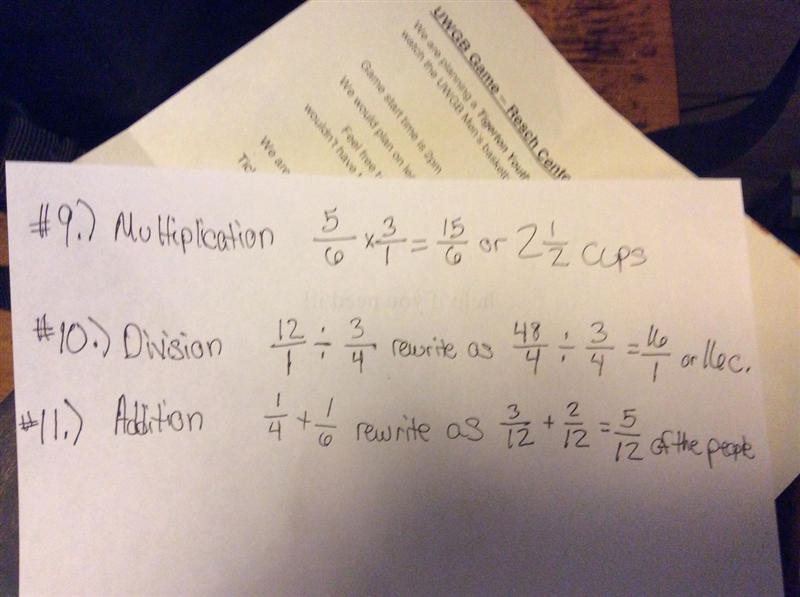 UWGB Game – Resch Cente
We are planning a Tigerton Youth
watch the UWGB Men's basketb
Game start time is 2pm
We would plan on le
Feel free
wouldn't have
We are
Tic
help if you need it!
#9.) Multiplication 5/6 x 3/1 = 15/6 or 2 1/2 cups
#10.) Division 12/1 ÷ 3/4 rewrite as 48/4 ÷ 3/4 = 16/1 or 16c.
#11.) Addition 1/4 + 1/6 rewrite as 3/12 + 2/12 = 5/12 of the people